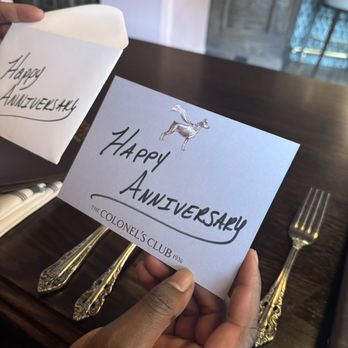 Happy
Anniversary
Happy
Anniversary
THE
COLONEL'S CLUB
1930